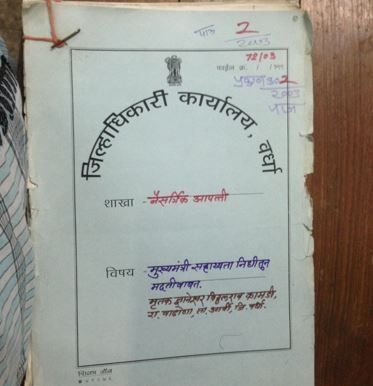 पाज 2
2003
12/03
फाईल क्र. / /
प्रकरण क्र. 2
2003
पाज
जिल्हाधिकारी कार्यालय, वर्धा
शाखा - नैसर्गिक आपत्ती
विषय - मुख्यमंत्री सहाय्यता निधीतून
मदतीबाबत.
मृतक ज्ञानेश्वर विठ्ठलराव कामडी,
रा. पाचोडा, ता. आर्वी, जि. वर्धा.